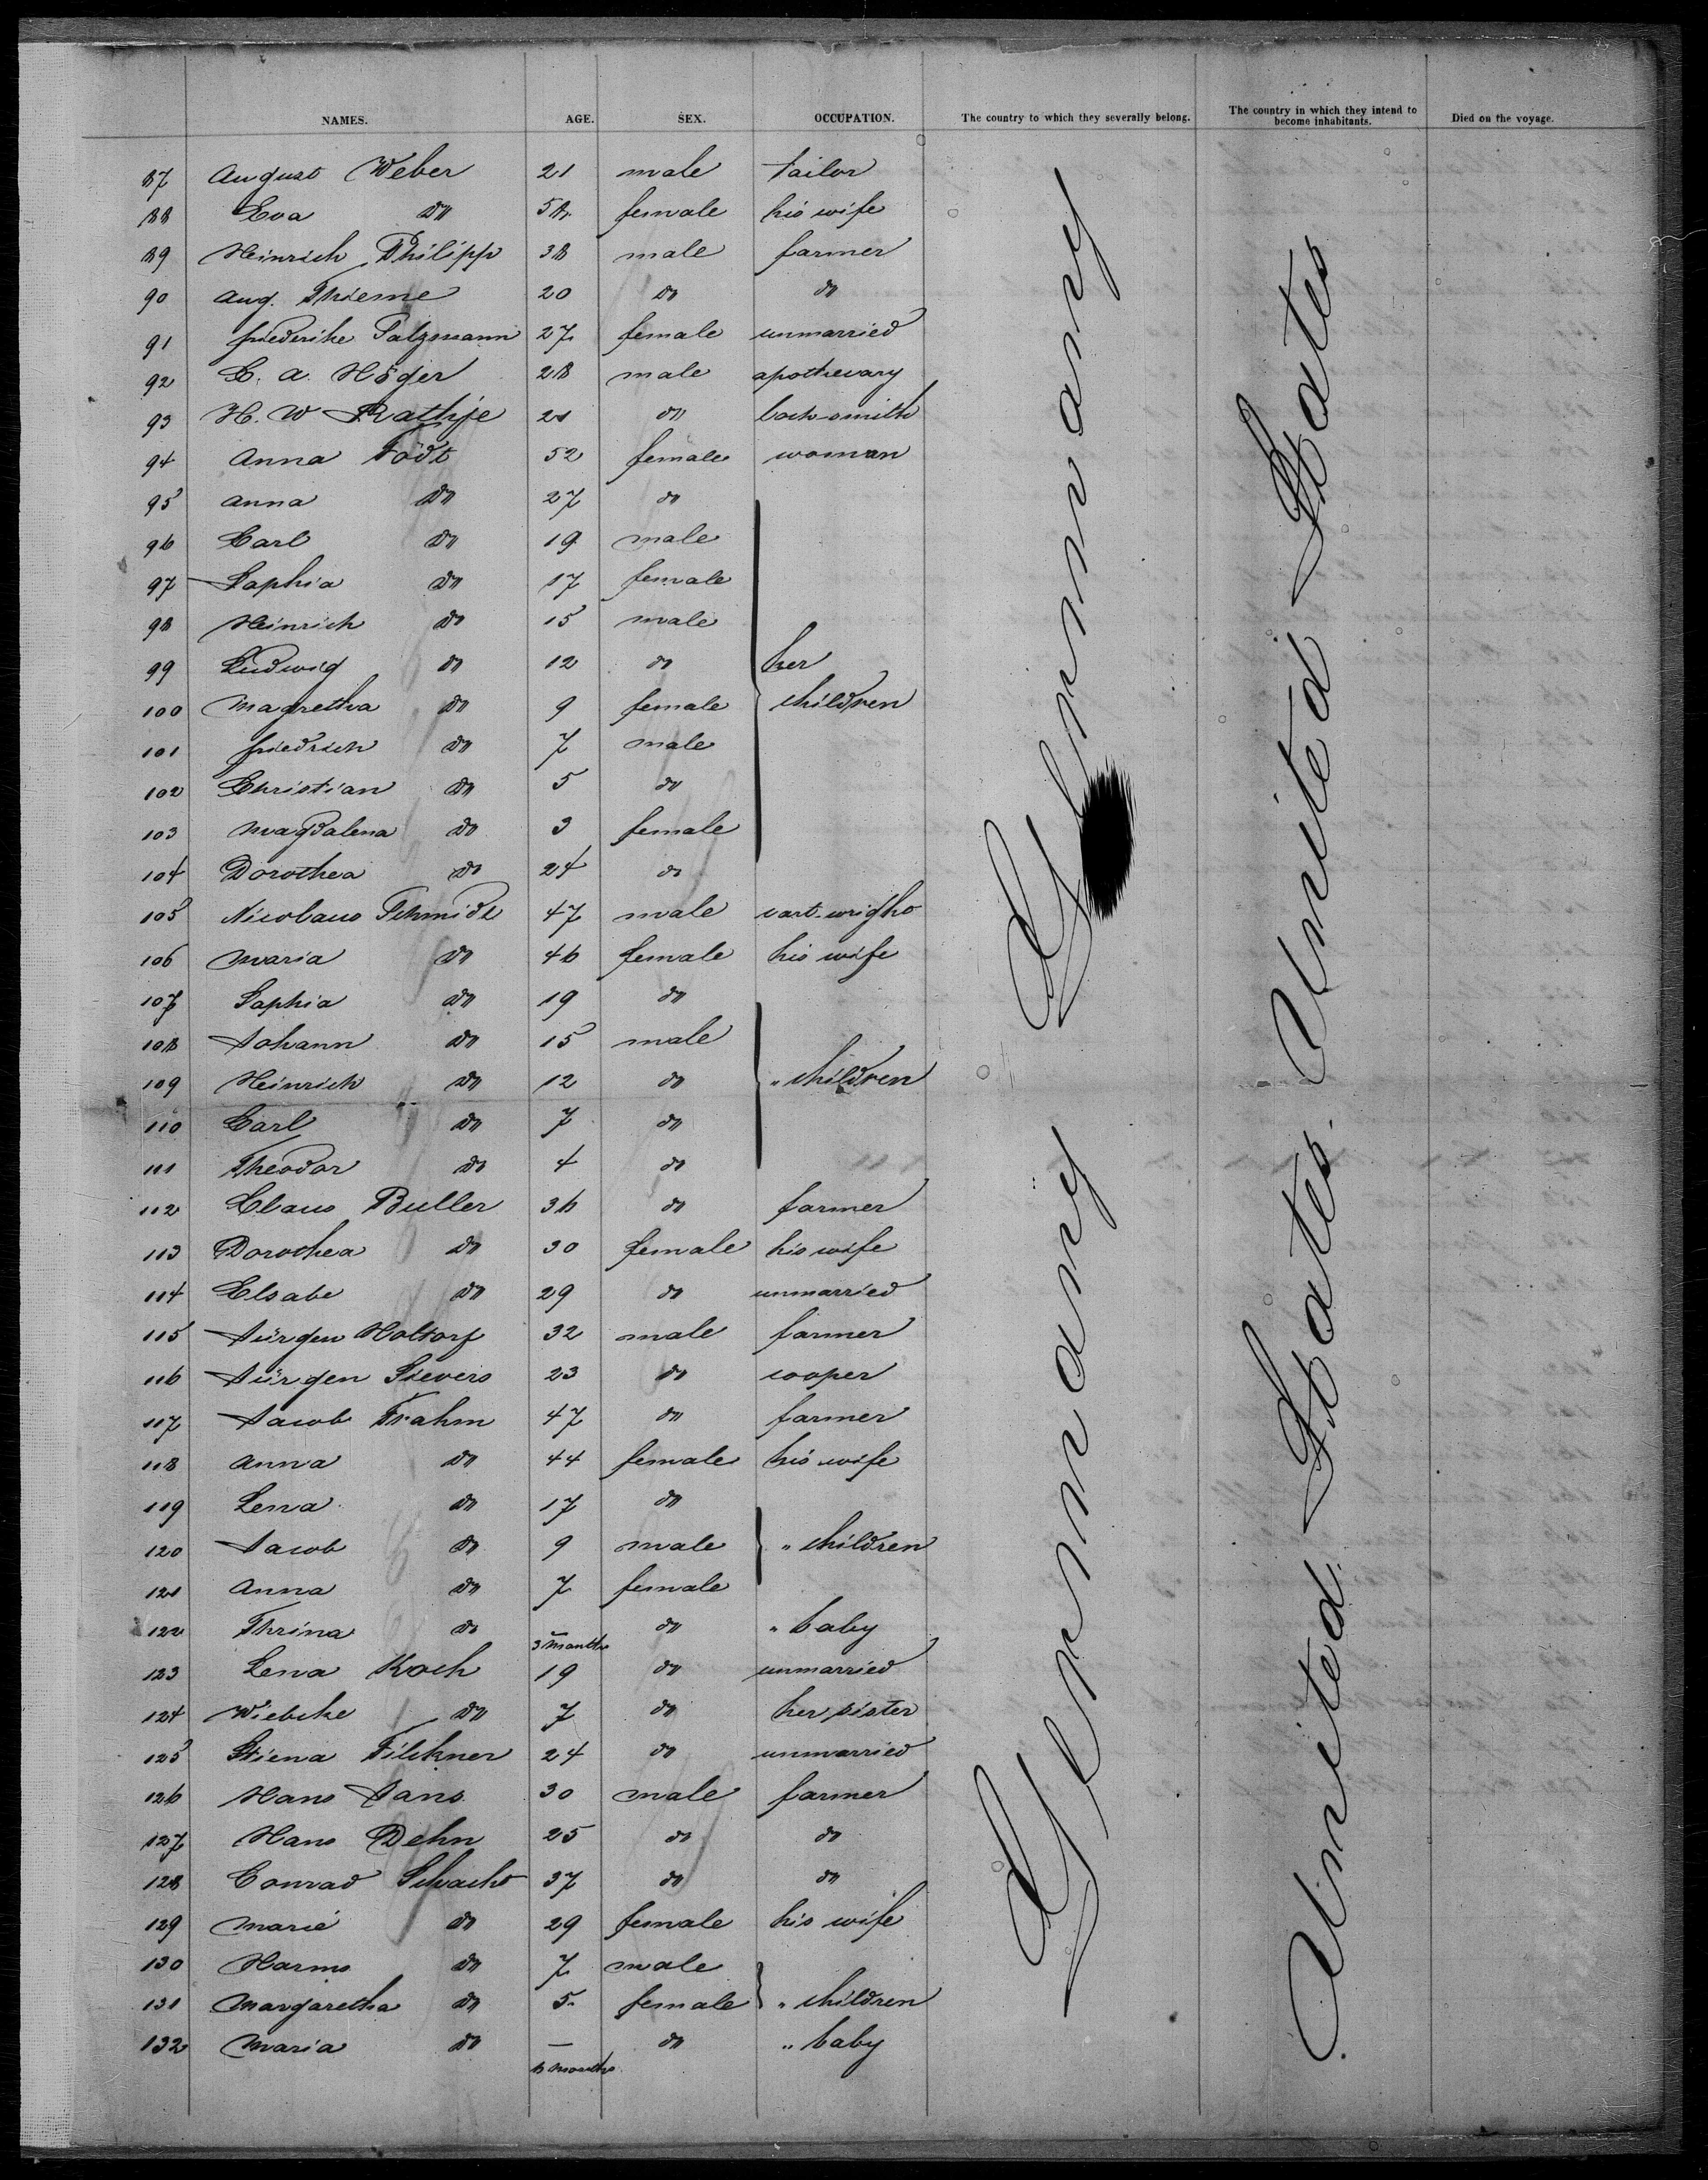 NAMES. AGE. SEX. OCCUPATION. The country to which they severally belong. The country in which they intend to become inhabitants. Died on the voyage.
87 August Weber 21 male tailor
88 Eva do female his wife
89 Heinrich Philipp 38 male farmer
90 Aug. Thieme 20 do do
91 Friederike Salzmann 27 female unmarried
92 C. A. Höger 28 male apothecary
93 H. W Rathje 21 do lock-smith
94 Anna Födt 52 female woman
95 Anna do 27 do
96 Carl do 19 male
97 Sophia do 17 female
98 Heinrich do 15 male
99 Ludwig do 12 do her
100 Magrettha do 9 female children
101 Friedrich do 7 male
102 Christian do 5 do
103 Magdalena do 3 female
104 Dorothea do 24 do
105 Nicolaus Schmidt 47 male cart-wright
106 Maria do 46 female his wife
107 Sophia do 19 do
108 Johann do 15 male
109 Heinrich do 12 do " children
110 Carl do 7 do
111 Theodor do 4 do
112 Claus Buller 36 do farmer
113 Dorothea do 30 female his wife
114 Elsabe do 29 do unmarried
115 Jürgen Holtorf 32 male farmer
116 Jürgen Sievers 23 do cooper
117 Jacob Frahm 47 do farmer
118 Anna do 44 female his wife
119 Lena do 17 do
120 Jacob do 9 male " children
121 Anna do 7 female
122 Thrina do 3 months do " baby
123 Lena Koch 19 do unmarried
124 Wiebcke do 7 do her sister
125 Stiena Filckner 24 do unmarried
126 Hans Jans 30 male farmer
127 Hans Dehn 25 do do
128 Conrad Schacht 37 do do
129 Marie do 29 female his wife
130 Harms do 7 male
131 Margaretha do 5 female " children
132 Maria do — months do " baby
Germany Germany
United States United States